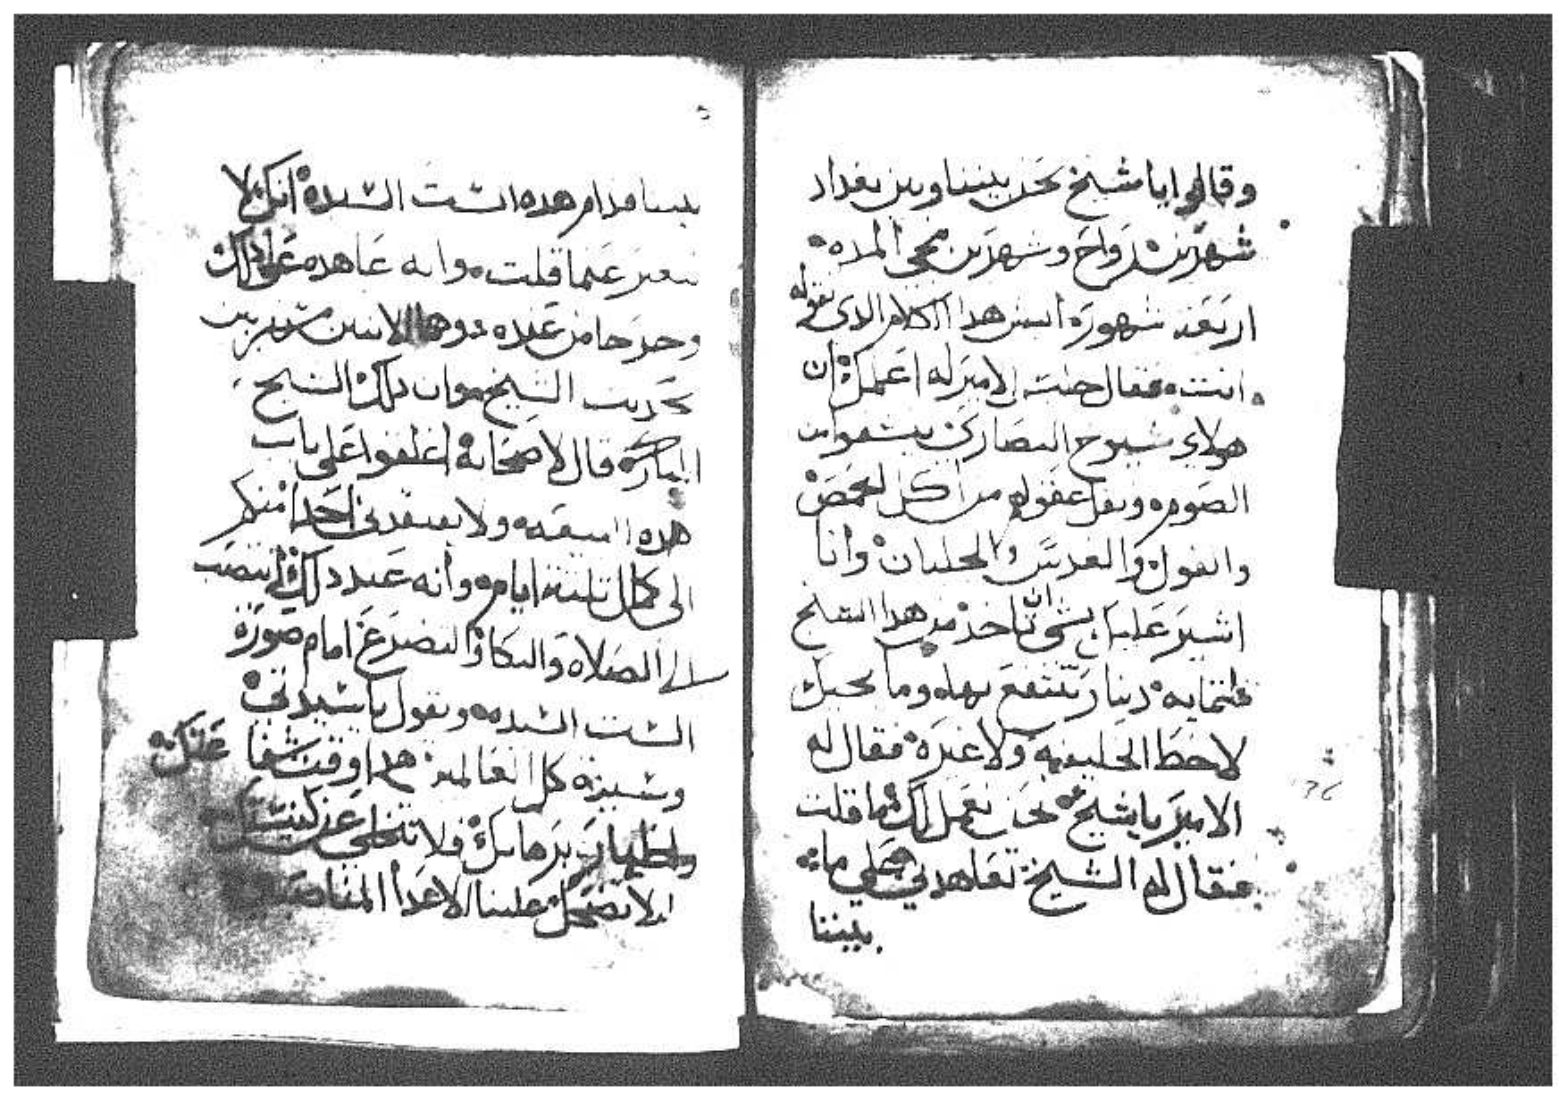 وقالوا يا شيخ نحن بيننا وبين بغداد
شهرين رواح وشهرين مجي المده
اربعه شهوره ايش هدا الكلام الدى تقوله
انت فقال الامير له اعلمك ان
هولاي شيوخ النصاركن ينشفوا من
الصوم ويقل عقولهم من اكل الحمص
والفول والعدس والجلبان وأنا
اشير عليك بشى ان تاخد من هدا الشيخ
تلتمايه دينار تنتفع بهم وما نجيك
لا خط الخليفه ولا غيره فقال له
الامير يا شيخ نحن نعمل لك ما قلت
فقال له الشيخ تعاهدني على ما
بيننا
بيننا قدام هده الست السيده انك لا
تتغير عما قلت وانه عاهده على دلك
وخرجا من عنده دوها الاتنين
بحديت الشيخ وان دلك الشيخ
المبارك قال لاصحابه اغلقوا على باب
هده البيعه ولا يفتقدني احدا منكم
الى كمال تلتة ايام وأنه عند دلك انتصب
الى الصلاه والبكا والتضرع امام صورة
الست السيده ويقول يا سيدتي
وسيدة كل العالم هدا وقت شفا
واظهار برهانك فلا تتخلي عن كنيستك
ليلا تضحك علينا الاعدا المناصبين